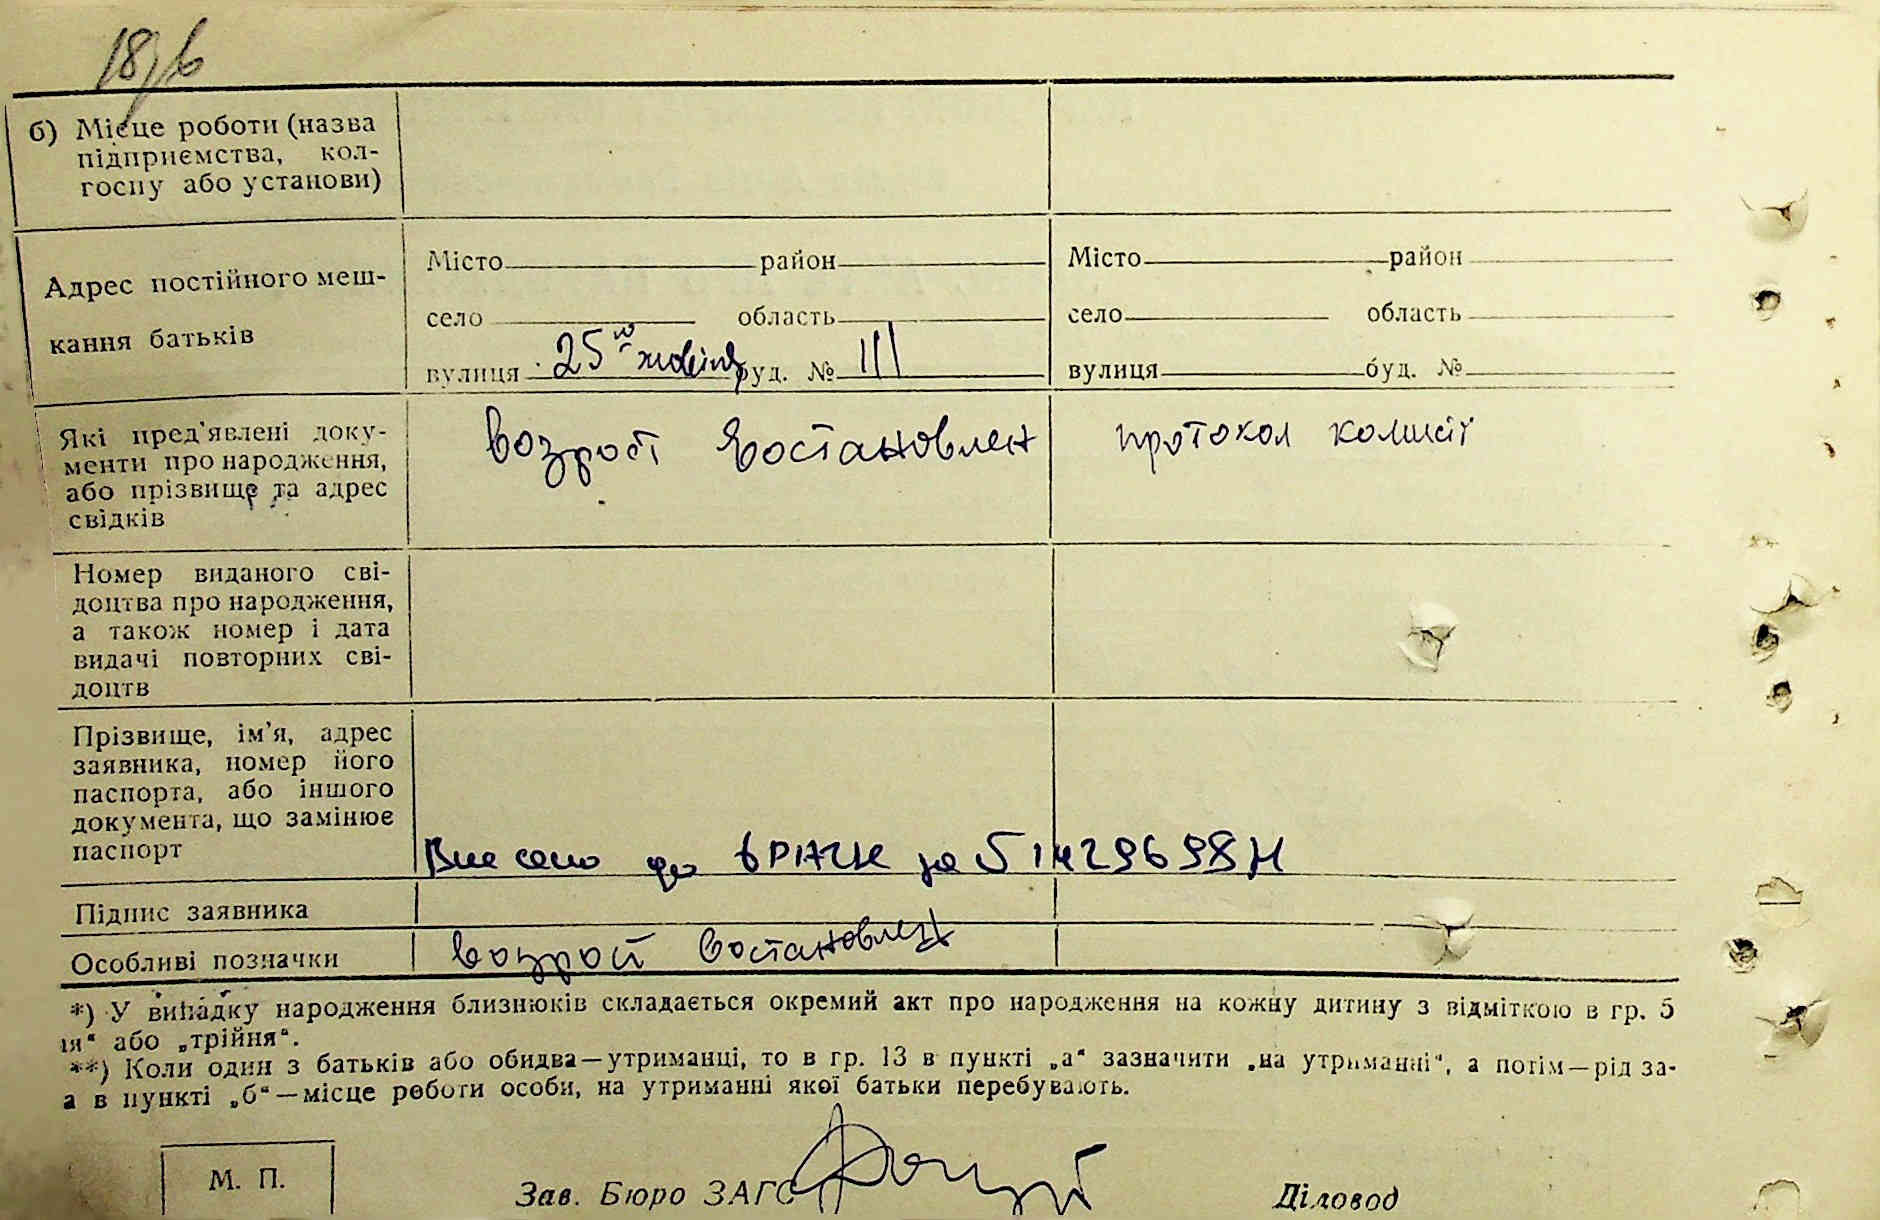 18/6
б) Місце роботи (назва
підприємства, кол-
госпу або установи)
Адрес постійного меш-
кання батьків
Місто район
село область
вулиця 25го жовтня буд. № 111
Місто район
село область
вулиця буд. №
Які пред'явлені доку-
менти про народження,
або прізвище та адрес
свідків
возрост востановлен
протокол комисії
Номер виданого сві-
доцтва про народження,
а також номер і дата
видачі повторних сві-
доцтв
Прізвище, ім'я, адрес
заявника, номер його
паспорта, або іншого
документа, що замінює
паспорт
Внесено до
Підпис заявника
Особливі позначки
возрост востановлен
*) У випадку народження близнюків складається окремий акт про народження на кожну дитину з відміткою в гр. 5
ія“ або „трійня“.
**) Коли один з батьків або обидва—утриманці, то в гр. 13 в пункті „а“ зазначити „на утриманні“, а потім—рід за-
а в пункті „б“—місце роботи особи, на утриманні якої батьки перебувають.
М. П.
Зав. Бюро ЗАГС
Діловод